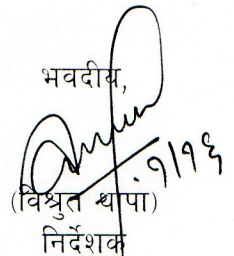 भवदीय,
१/१६
(विश्रुत थापा)
निर्देशक